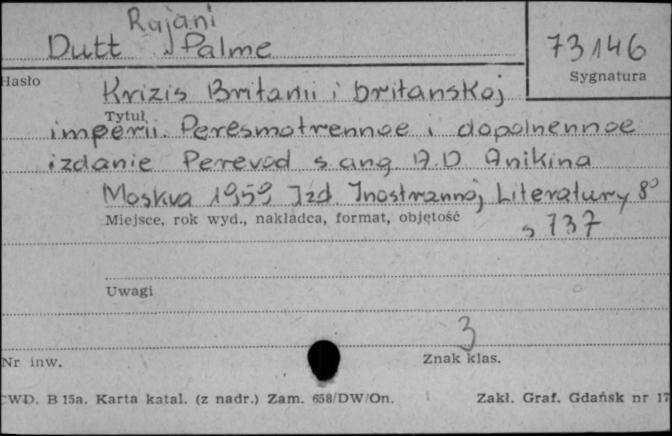 Rajani
Dutt Palme
73146
Hasło
Sygnatura
Krizis Britanii i britanskoj
Tytuł
imperii. Peresmotrennoe i dopolnennoe
izdanie Perevod s ang A.D Anikina
Moskva 1959 Izd. Inostrannoj Literatury 8°
Miejsce, rok wyd., nakładca, format, objętość
s 737
Uwagi
3
Nr inw.
Znak klas.
CWD. B 15a. Karta katal. (z nadr.) Zam. 658/DW/On.
Zakł. Graf. Gdańsk nr 17